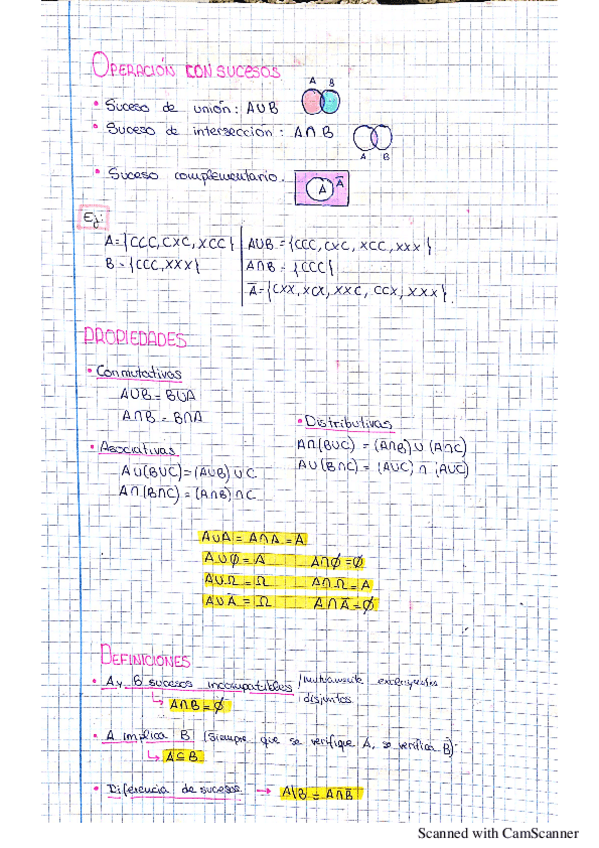 OPERACIÓN CON SUCESOS
• Suceso de unión: A∪B
A B
• Suceso de intersección: A∩B
A B
• Suceso complementario.
A Ā
Ej:
A={CCC,CXC,XCC} A∪B={CCC,CXC,XCC,XXX}
B={CCC,XXX} A∩B={CCC}
Ā={CXX,XCX,XXC,CCX,XXX}
PROPIEDADES
• Conmutativas
A∪B=B∪A
A∩B=B∩A
• Asociativas
A∪(B∪C)=(A∪B)∪C
A∩(B∩C)=(A∩B)∩C
• Distributivas
A∩(B∪C)=(A∩B)∪(A∩C)
A∪(B∩C)=(A∪C)∩(A∪C)
A∪A=A∩A=A
A∪∅=A A∩∅=∅
A∪Ω=Ω A∩Ω=A
A∪Ā=Ω A∩Ā=∅
DEFINICIONES
• A y B sucesos incompatibles /mutuamente excluyentes
disjuntos
↳ A∩B=∅
• A implica B (Siempre que se verifique A, se verifica B)
↳ A⊆B
• Diferencia de sucesos → A\B=A∩B̄
Scanned with CamScanner